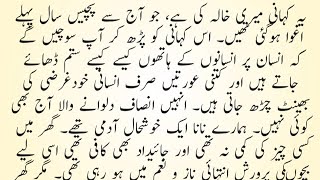 یہ کہانی میری خالہ کی ہے، جو آج سے پچیس سال پہلے
اغوا ہوگئی تھیں۔ اس کہانی کو پڑھ کر آپ سوچیں گے
کہ انسان پر انسانوں کے ہاتھوں کیسے کیسے ستم ڈھائے
جاتے ہیں اور کتنی عورتیں صرف انسانی خودغرضی کی
بھینٹ چڑھ جاتی ہیں۔ انہیں انصاف دلوانے والا آج بھی
کوئی نہیں۔ ہمارے نانا ایک خوشحال آدمی تھے۔ گھر میں
کسی چیز کی کمی نہ تھی اور جائیداد بھی کافی تھی اسی لیے
بچوں کی پرورش انتہائی ناز و نعم میں ہو رہی تھی۔ مگر گھر